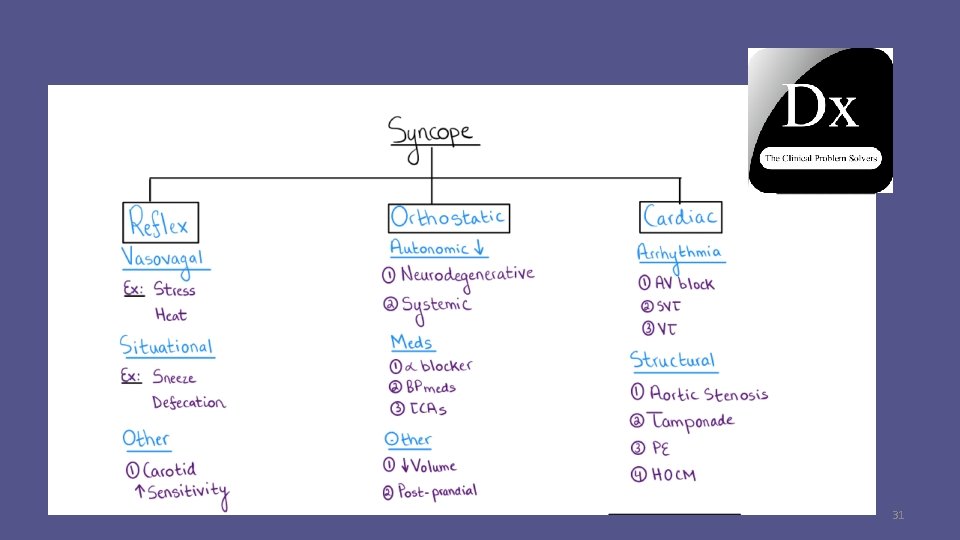 Dx
The Clinical Problem Solvers
Syncope
Reflex
Vasovagal
Ex: Stress
Heat
Situational
Ex: Sneeze
Defecation
Other
① Carotid
↑ Sensitivity
Orthostatic
Autonomic ↓
① Neurodegenerative
② Systemic
Meds
① α blocker
② BP meds
③ TCAs
Other
① ↓ Volume
② Post-prandial
Cardiac
Arrhythmia
① AV block
② SVT
③ VT
Structural
① Aortic Stenosis
② Tamponade
③ PE
④ HOCM
31